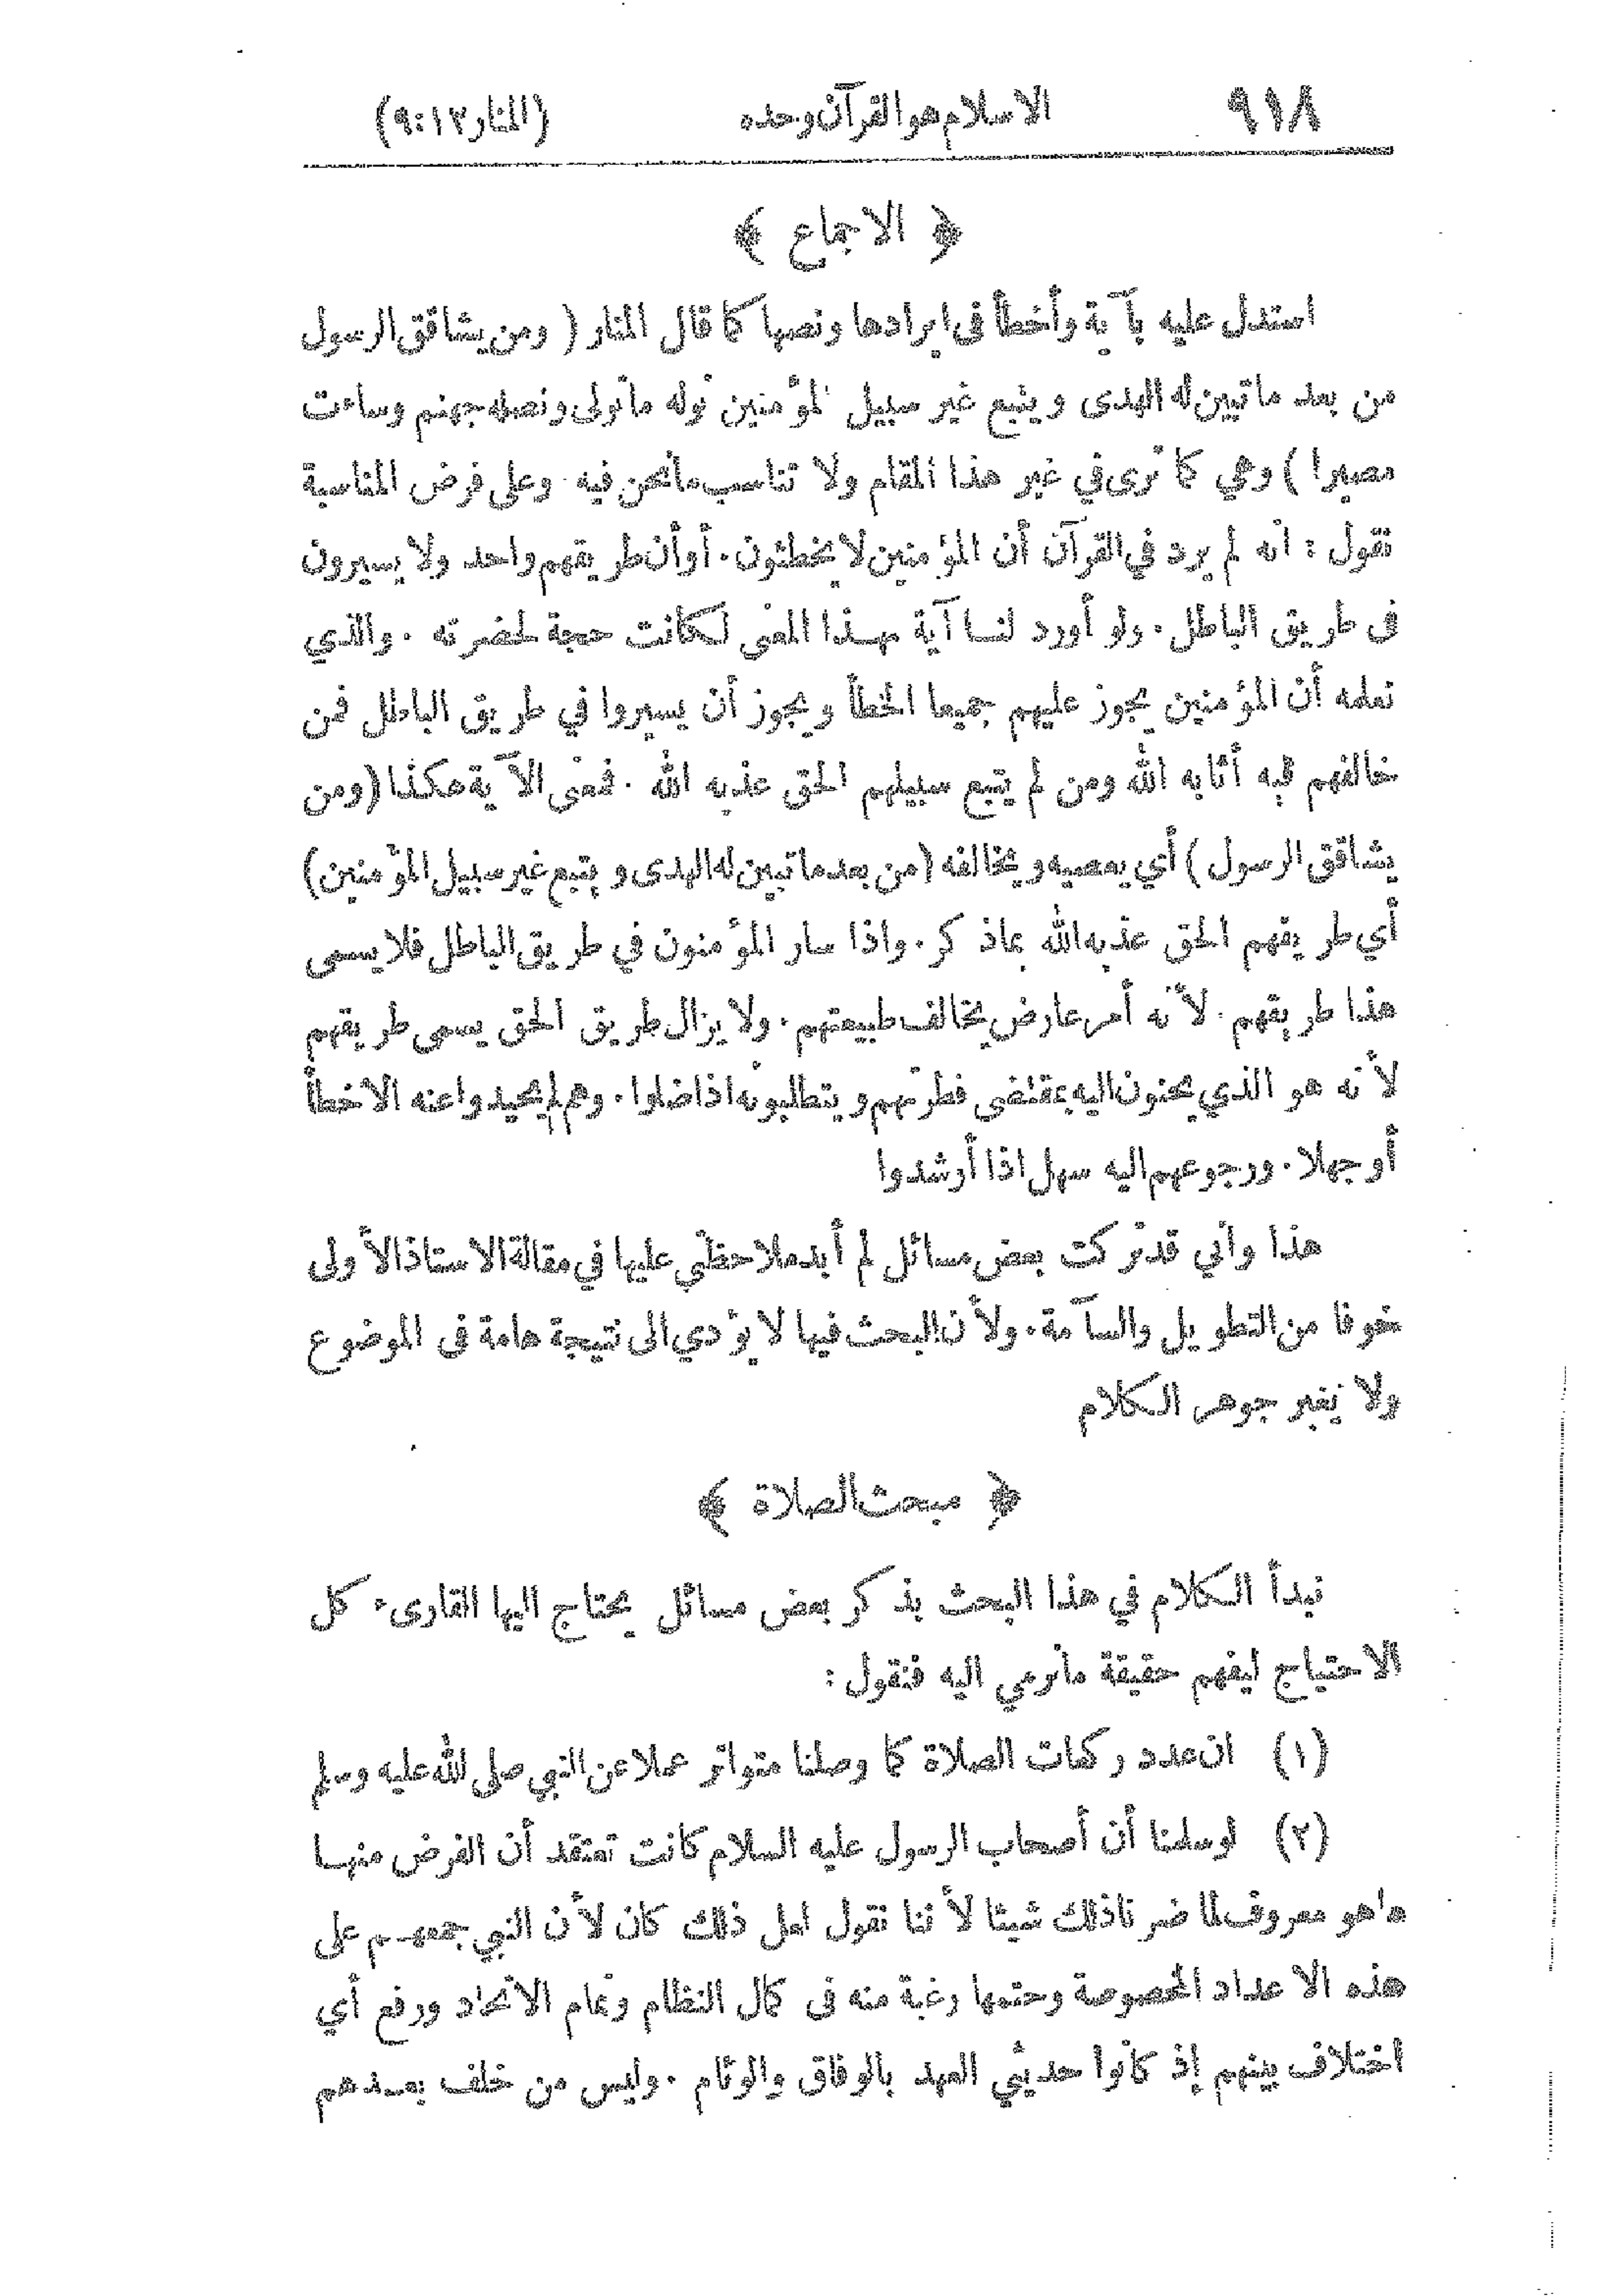 ٩١٨ الاسلام هو القرآن وحده (المنار ١٢:٩)
﴿ الاجماع ﴾
استدل عليه بآية وأخطأ في ايرادها ونصها كما قال المنار ( ومن يشاقق الرسول
من بعد ما تبين له الهدى ويتبع غير سبيل المؤمنين نوله ماتولى ونصله جهنم وساءت
مصيرا ) وهي كما ترى في غير هذا المقام ولا تناسب مانحن فيه وعلى فرض المناسبة
نقول : انه لم يرد في القرآن أن المؤمنين لا يخطئون . أو أن طريقهم واحد ولا يسيرون
في طريق الباطل . ولو أورد لنا آية بهذا المعنى لكانت حجة لحضرته . والذي
نعلمه أن المؤمنين يجوز عليهم جميعا الخطأ ويجوز أن يسيروا في طريق الباطل فمن
خالفهم فيه أثابه الله ومن لم يتبع سبيلهم الحق عذبه الله . فمعنى الآية هكذا (ومن
يشاقق الرسول ) أي يعصيه ويخالفه (من بعد ما تبين له الهدى ويتبع غير سبيل المؤمنين)
أي طريقهم الحق عذبه الله بماذكر . واذا سار المؤمنون في طريق الباطل فلا يسمى
هذا طريقهم . لأنه أمر عارض يخالف طبيعتهم . ولا يزال طريق الحق يسمى طريقهم
لأنه هو الذي يحنون اليه بمقتضى فطرتهم ويتطلبونه اذا ضلوا . وهم لم يحيدوا عنه الا خطأ
أو جهلا . ورجوعهم اليه سهل اذا أرشدوا
هذا واني قد تركت بعض مسائل لم أبد ملاحظتي عليها في مقالة الاستاذ الأولى
خوفا من التطويل والسآمة . ولأن البحث فيها لا يؤدي الى نتيجة هامة في الموضوع
ولا يغير جوهر الكلام
﴿ مبحث الصلاة ﴾
نبدأ الكلام في هذا البحث بذكر بعض مسائل يحتاج اليها القارىء كل
الاحتياج ليفهم حقيقة مانرمي اليه فنقول :
(١) ان عدد ركعات الصلاة كما وصلنا متواتر عملا عن النبي صلى الله عليه وسلم
(٢) لو سلمنا أن أصحاب الرسول عليه السلام كانت تعتقد أن الفرض منها
ما هو معروف لما ضرنا ذلك شيئا لأننا نقول لعل ذلك كان لأن النبي جمعهم على
هذه الاعداد المخصوصة وحتمها رغبة منه في كمال النظام وتمام الاتحاد ورفع أي
اختلاف بينهم إذ كانوا حديثي العهد بالوفاق والوئام . وليس من خلف بعدهم